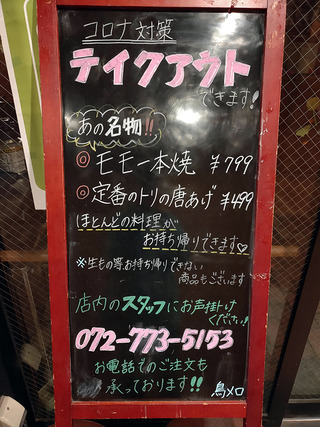 コロナ対策
テイクアウト
できます!
あの名物!!
◎モモ一本焼 ¥799
◎定番のトリの唐あげ ¥499
ほとんどの料理が
お持ち帰りできます♡
※生もの等お持ち帰りできない
商品もございます
店内のスタッフにお声掛け
ください!
072-773-5153
お電話でのご注文も
承っております!!
鳥メロ